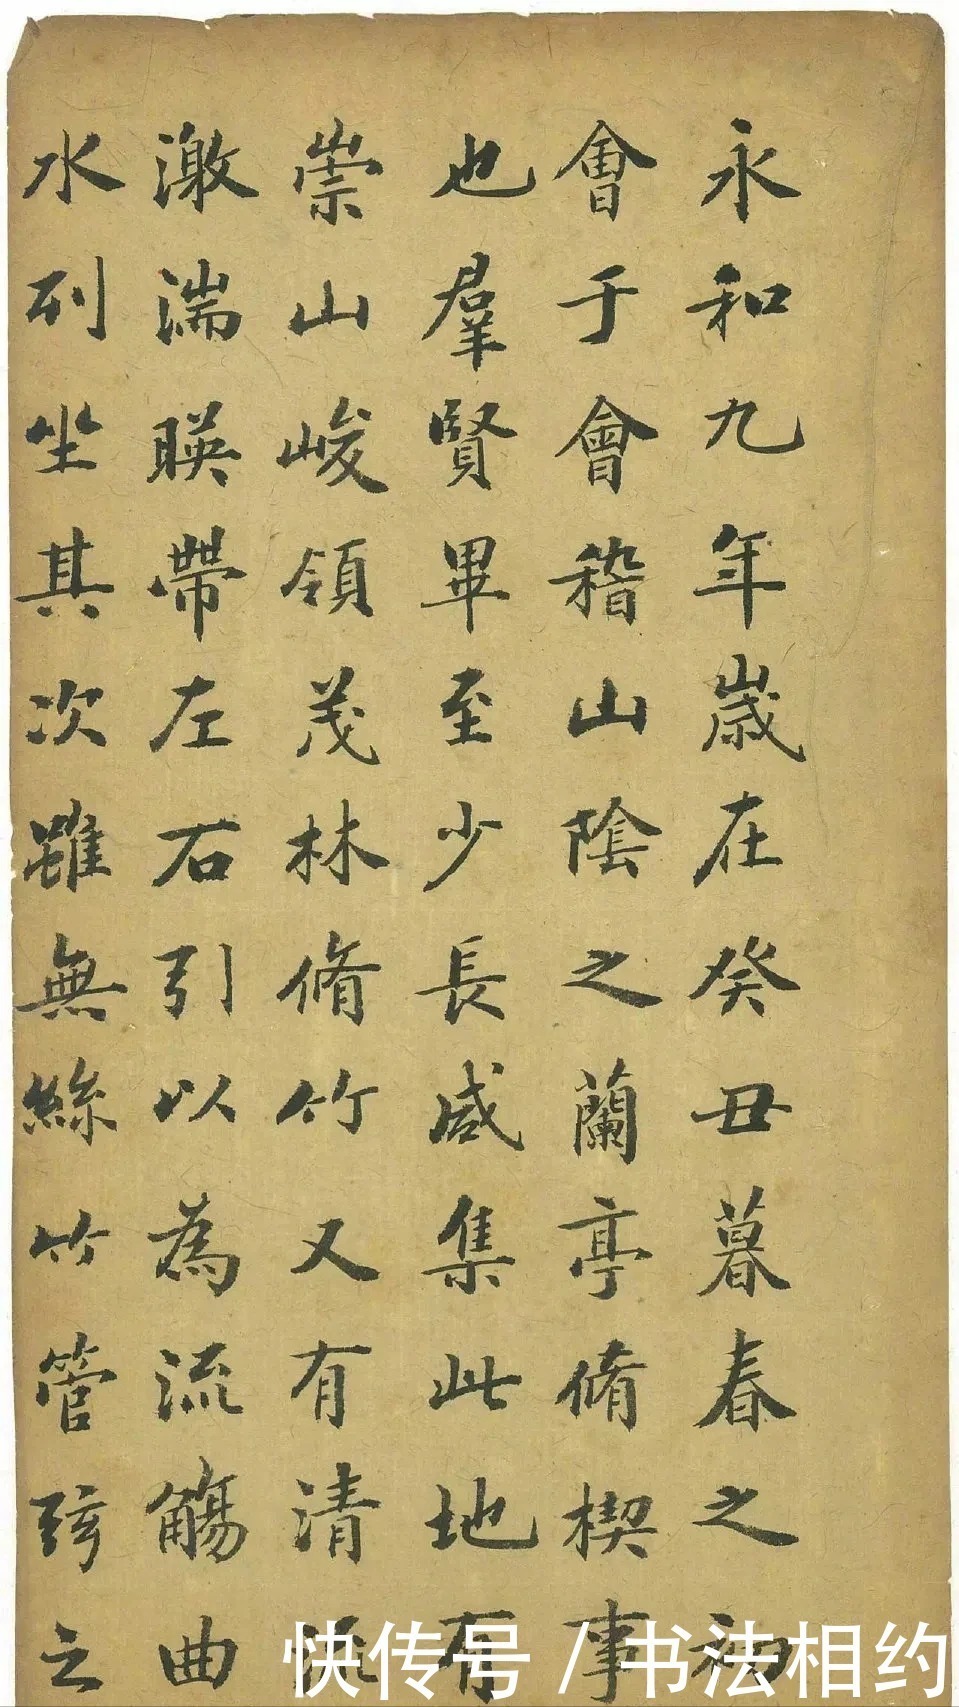 永和九年歳在癸丑暮春之初
會于會稽山陰之蘭亭脩楔事
也羣賢畢至少長咸集此地有
崇山峻領茂林脩竹又有清流
激湍暎帶左右引以為流觴曲
水列坐其次雖無絲竹管弦之
快传号/书法相约